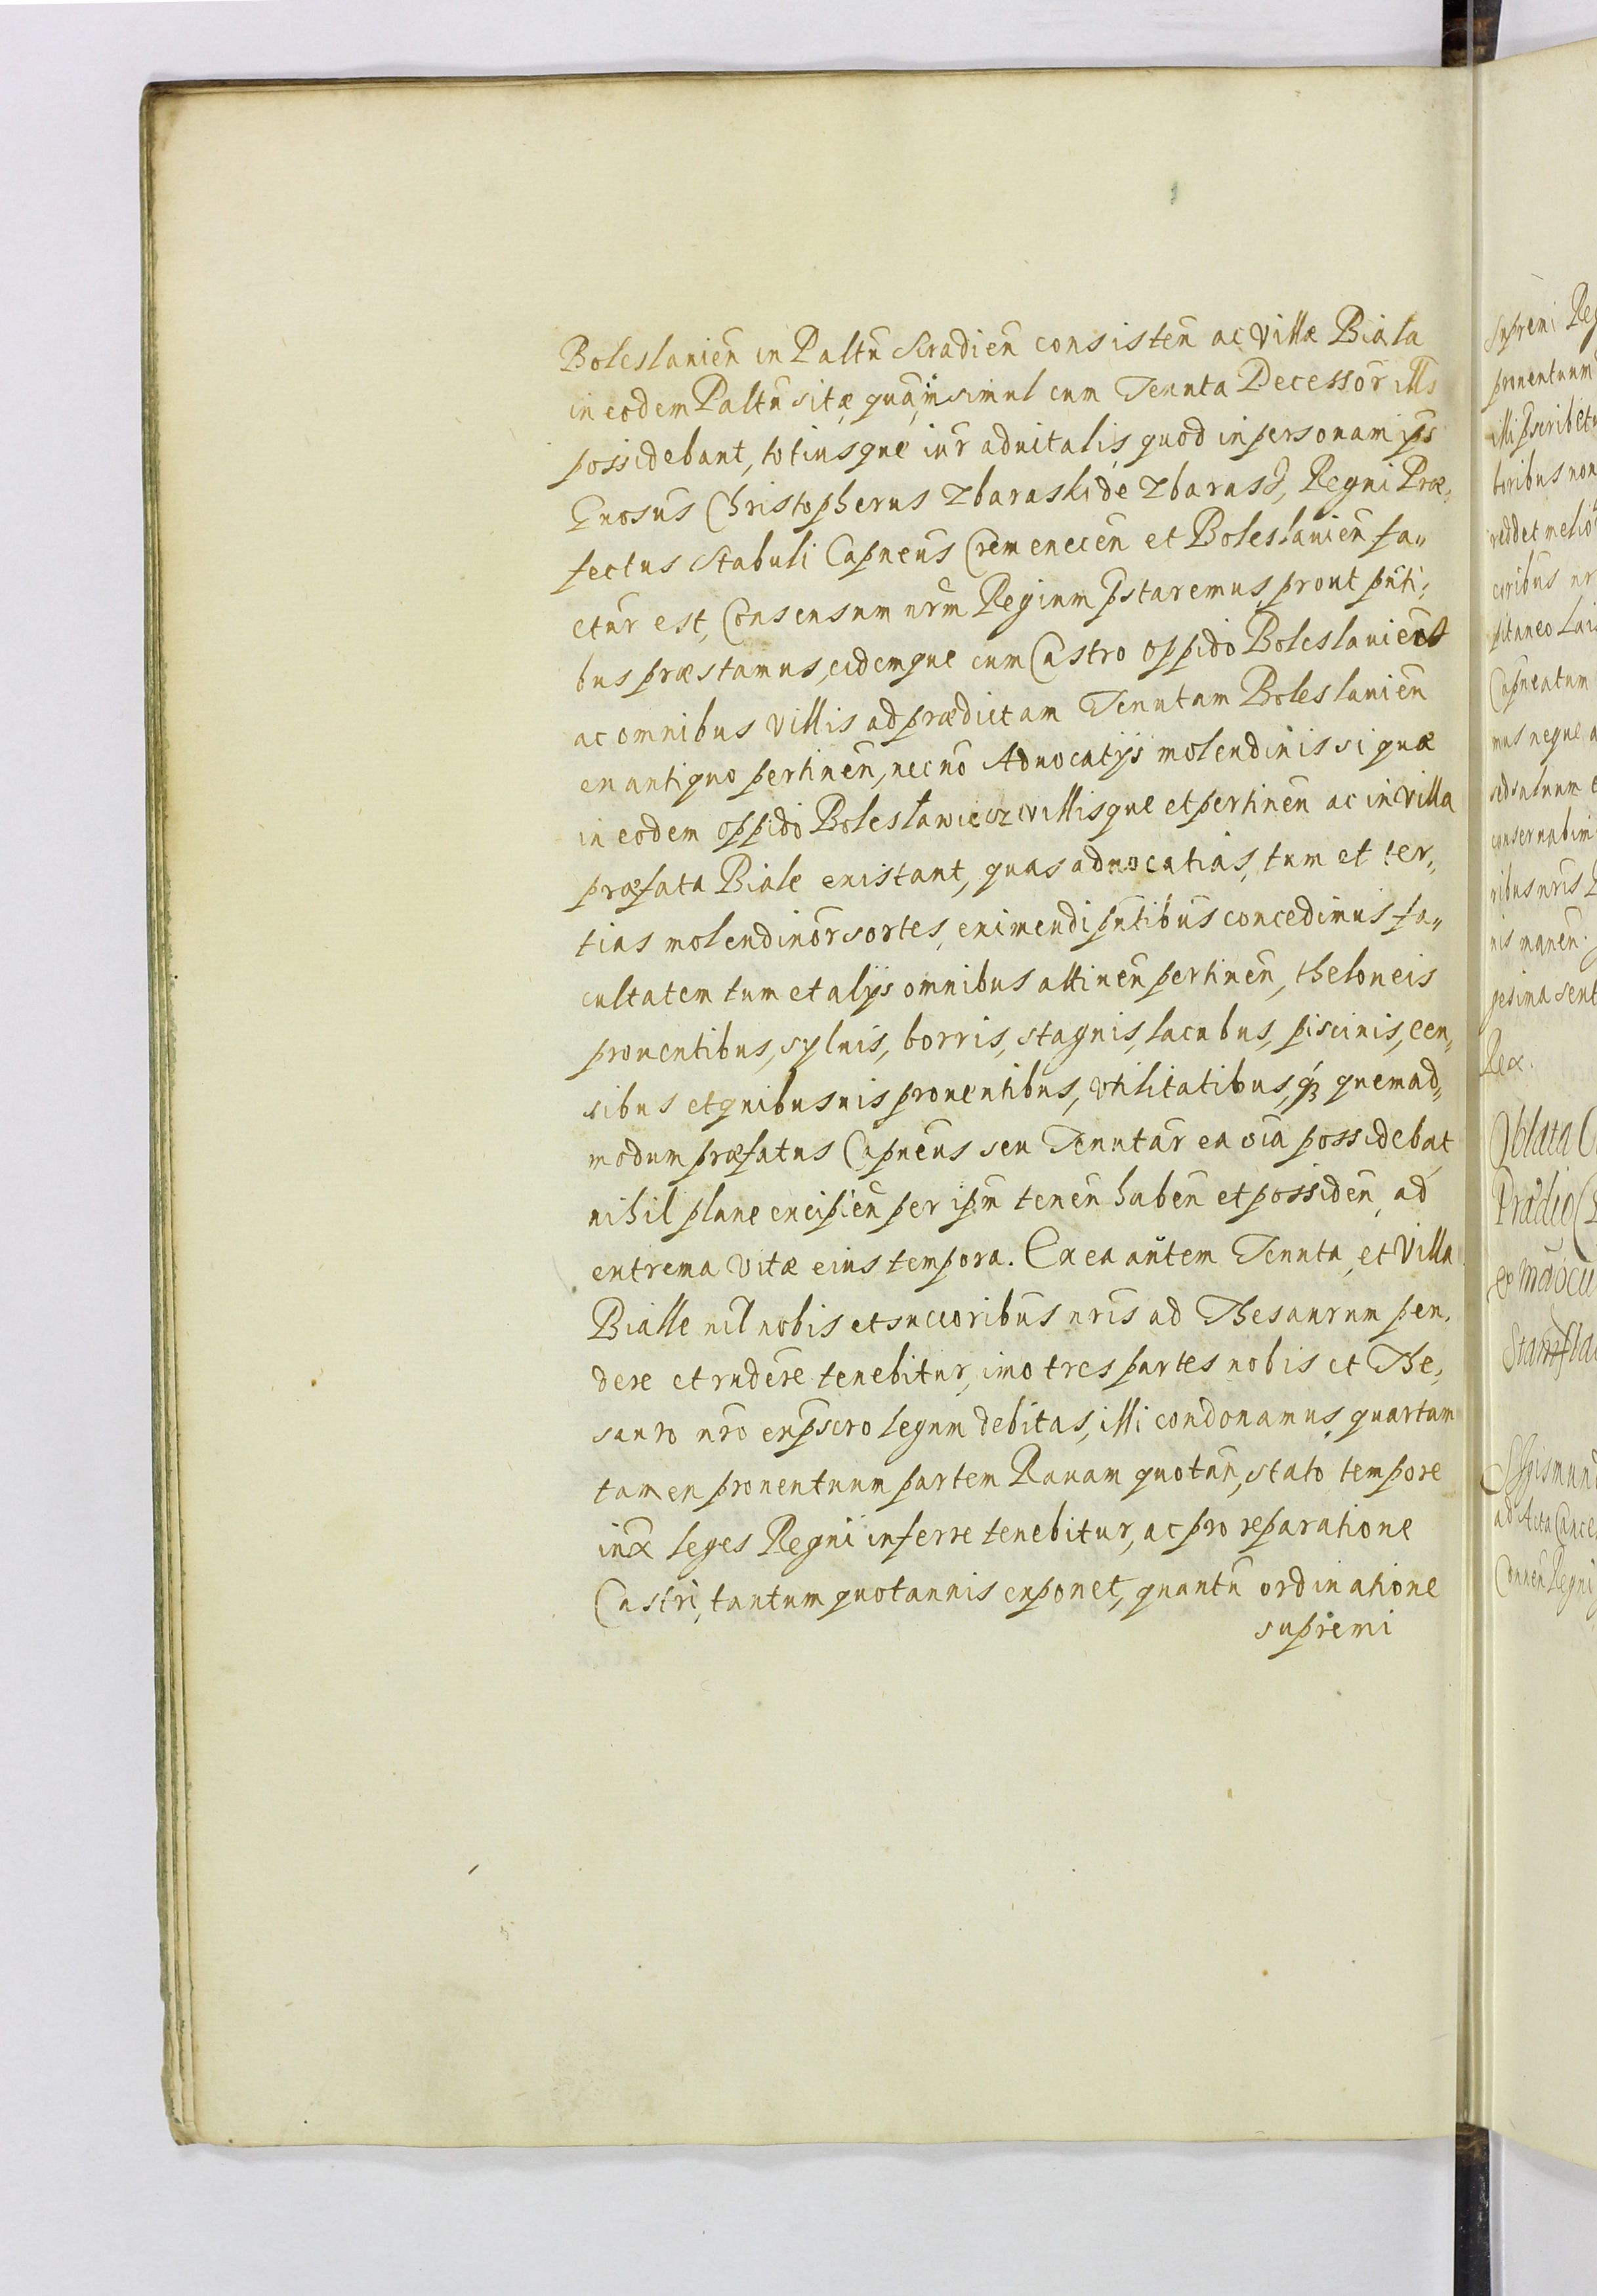 Boleslauień in Paltũ Siradień consisteñ ac Villæ Biala
in eodem Paltũ sitæ, quam simul cum Tenuta Decessor ills
possidebant, totiusque iur̃ aduitalis, quod in personam ips̃
Gñosus Christopherus Zbaraski de Zbarasz, Regni Præ,
fectus Stabuli Capneus Cremenecen̄ et Boleslauien̄ fa„
ctur̃ est, Consensum nr̃m Regium p̃staremus, prout pñti,
bus præstamus, eidemque cum Castro oppido Boleslauien̄
ac omnibus Villis ad prædictam Tenutam Boleslauien̄
ex antiquo pertinen̄, necnõ Aduocatijs molendinis si quæ
in eodem oppido Bolesławiecz villisque et pertinen̄ ac in villa
præfata Biale existant, quas aduocatias, tum et ter„
tias molendinor̃ sortes, eximendi pñtibus concedimus fa„
cultatem tum et alijs omnibus attinen̄ pertinen̄, theloneis
prouentibus, syluis, borris, stagnis, lacubus, piscinis, cen„
sibus et quibusuis prouentibus, vtilitatibus, quemad„
modum præfatus Capneus seu Tenutar̃ ea oĩa possidebat,
nihil plane excipien̄ per ipm̃ tenen̄ haben̄ et possiden̄, ad
extrema vitæ eius tempora. Ex ea autem Tenuta, et Villa
Bialle nil̃ nobis et succoribus nr̃is ad Thesaurum pen,
dere et rudere tenebitur, imo tres partes nobis et The,
sauro nr̃o ex p̃scro legum debitas, illi condonamus, quartam
tamen prouentuum partem Rauam quotan̄, stato tempore
iux̃ leges Regni inferre tenebitur, ac pro reparatione
Castri, tantum quotannis exponet, quantũ ordinatione
supremi
Supremi Reg
prouentuum
illi p̃scribetu
toribus non
reddet melio
pitaneo
Capneatum
mus neque a
sed saluum e
conseruabim
ribus nr̃is
nis manen̄.
gesima
Rex.
Oblata
Sigismund
ad Acta Cance
Regni